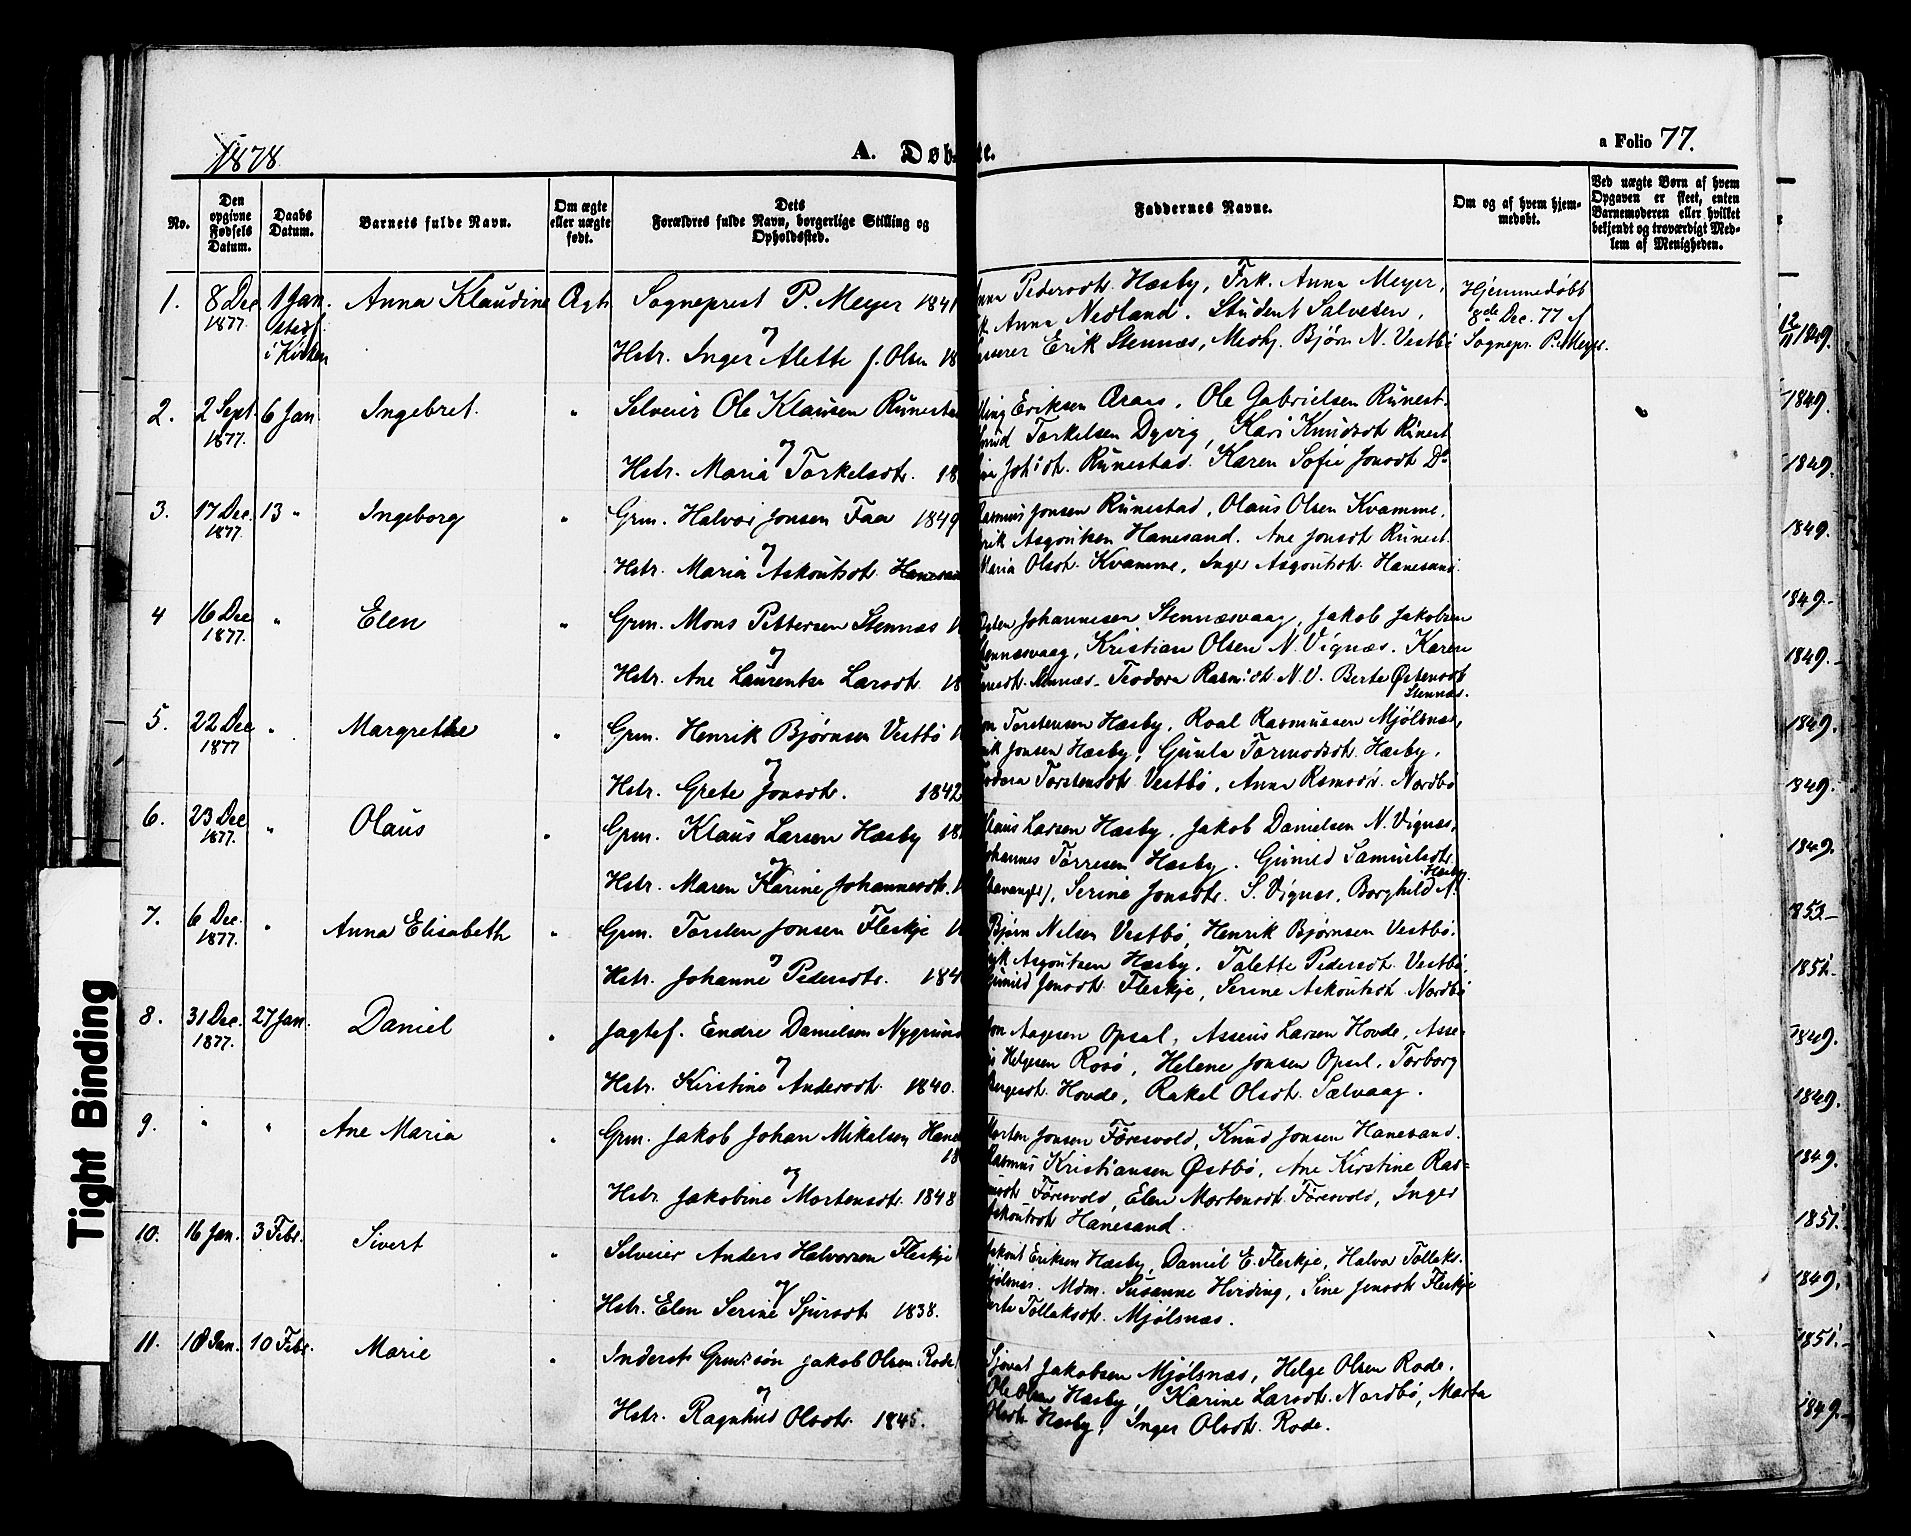 1878.
A. Døb
e.
a Folio 77.
No.
Den opgivne Fødsels Datum.
Daabs Datum.
Barnets fulde Navn.
Om ægte eller uægte født.
Dets Forældres fulde Navn, borgerlige Stilling og Opholdssted.
Faddernes Navne.
Om og af hvem hjemmedøbt.
Ved uægte Børn af hvem Opgaven er skeet, enten Barnemoderen eller hvilket bekjendt og troværdigt Medlem af Menigheden.
1. 8 Dec 1877. 1 Jan. i Kirken Anna Klaudine Ægte Sogneprest P. Meyer 1841
og
Hstr. Inger Alette f. Olsen 18
Pedersdt. Hæsby, Frk. Anna Meyer,
Anna Nedland. Student Salvesen,
Erik Stennæs, Medhj. Bjørn N. Vestbø
Hjemmedøbt
8de Dec. 77 af
Sognepr. P. Meyer.
2. 2 Sept. 1877. 6 Jan. Ingebret. " Selveier Ole Klausen Runestad
og
Hstr. Maria Torkelsdt. 18
Eriksen Araas, Ole Gabrielsen Runest.
Torkelsen Dyvig, Kari Knudsdt Runest
Runestad. Karen Sofie Jonsdt Do
3. 17 Dec. 1877. 13 " Ingeborg " Grm. Halvor Jonsen Faa 1849
og
Hstr. Maria Askoutsdt. Hanesand
Rasmus Jonsen Runestad, Olaus Olsen Kvamme,
Asgoutsen Hanesand. Ane Jonsdt Runest.
Maria Olsdt. Kvamme, Inger Asgoutsdt. Hanesand.
4 16 Dec 1877. " Elen " Grm. Mons Pettersen Stennæs 1
og
Hstr. Ane Laurentse Larsdt. 18
Johannesen Stennæsvaag, Jakob Jakobsen
Stennæsvaag, Kristian Olsen N. Vignæs. Karen
Teodora Rasm.dt. N.V. Berte Østensdt
Stennæs.
5. 22 Dec 1877 " Margrethe " Grm. Henrik Bjørnsen Vestbø 1
og
Hstr. Grete Jonsdt. 1842
Torstensen Hæsby, Roal Rasmussen Mjølsnæs,
Jonsen Hæsby, Gunla Tormodsdt. Hæsby,
Torstensdt Vestbø, Anna Rsmsdr. Nordbø
6. 23 Dec 1877. " Olaus " Grm. Klaus Larsen Hæsby 18
og
Hstr. Maren Karine Johannesdt. 1
Klaus Larsen Hæsby, Jakob Danielsen N. Vignæs,
Johannes Tørresen Hæsby. Gunild Samuelsdt.
Hæsby.
(Stavanger), Serine Jonsdt. S. Vignæs, Borghild N.
7. 6 Dec. 1877. " Anna Elisabeth " Grm. Torsten Jonsen Fleskje 1
og
Hstr. Johanne Pedersdt. 184
Bjørn Nilsen Vestbø, Henrik Bjørnsen Vestbø.
Asgoutsen Hæsby. Talette Pedersdt. Vestbø,
Gunild Jonsdt. Fleskje, Serine Askoutsdt Nordbø
8. 31 Dec. 1877. 27 Jan. Daniel " Jagtef. Endre Danielsen Nygrund
og
Hstr. Kirstine Andersdt. 1840.
Aagesen Opsal, Asseus Larsen Hovde, Asse-
Helgesen Rosø, Helene Jonsen Opsal, Torborg
Hovde, Rakel Olsdt. Sælvaag.
9. " " Ane Maria " Grm. Jakob Johan Mikalsen Hane
18
og
Hstr. Jakobine Mortensdt. 1848
Morten Jonsen Føresvold, Knud Jonsen Hanesand.
Rasmus Kristiansen Østbø, Ane Kirstine Ras-
Føresvold, Elen Mortensdt. Føresvold, Inger
Askoutsdt Hanesand.
10. 16 Jan. 3 Febr. Sivert " Selveier Anders Halvorsen Fleskje 1
og
Hstr. Elen Serine Sjursdt 1838.
Askout Eriksen Hæsby, Daniel E. Fleskje, Halvor Tollaks.
Mjølsnæs. Mdm. Susanne Hviding, Sine Jensdt Fleskje
Tollaksdt. Mjølsnæs.
11. 18 Jan. 10 Febr. Marie " Inderst Grmdssøn Jakob Olsen Rode 1
og
Hstr. Ragnhild Olsdt. 1845.
Sjovat Jakobsen Mjølsnæs, Helge Olsen Rode.
Ole Olsen Hæsby, Karine Larsdt. Nordbø, Marta
Olsdt. Hæsby, Inger Olsdt. Rode.
12/11 1849.
1849.
1849.
1849.
1849.
1849.
1849.
1849.
1849.
1852
1851
1849.
1849.
1849.
1851.
1849.
1851.
1849.
Tight Binding